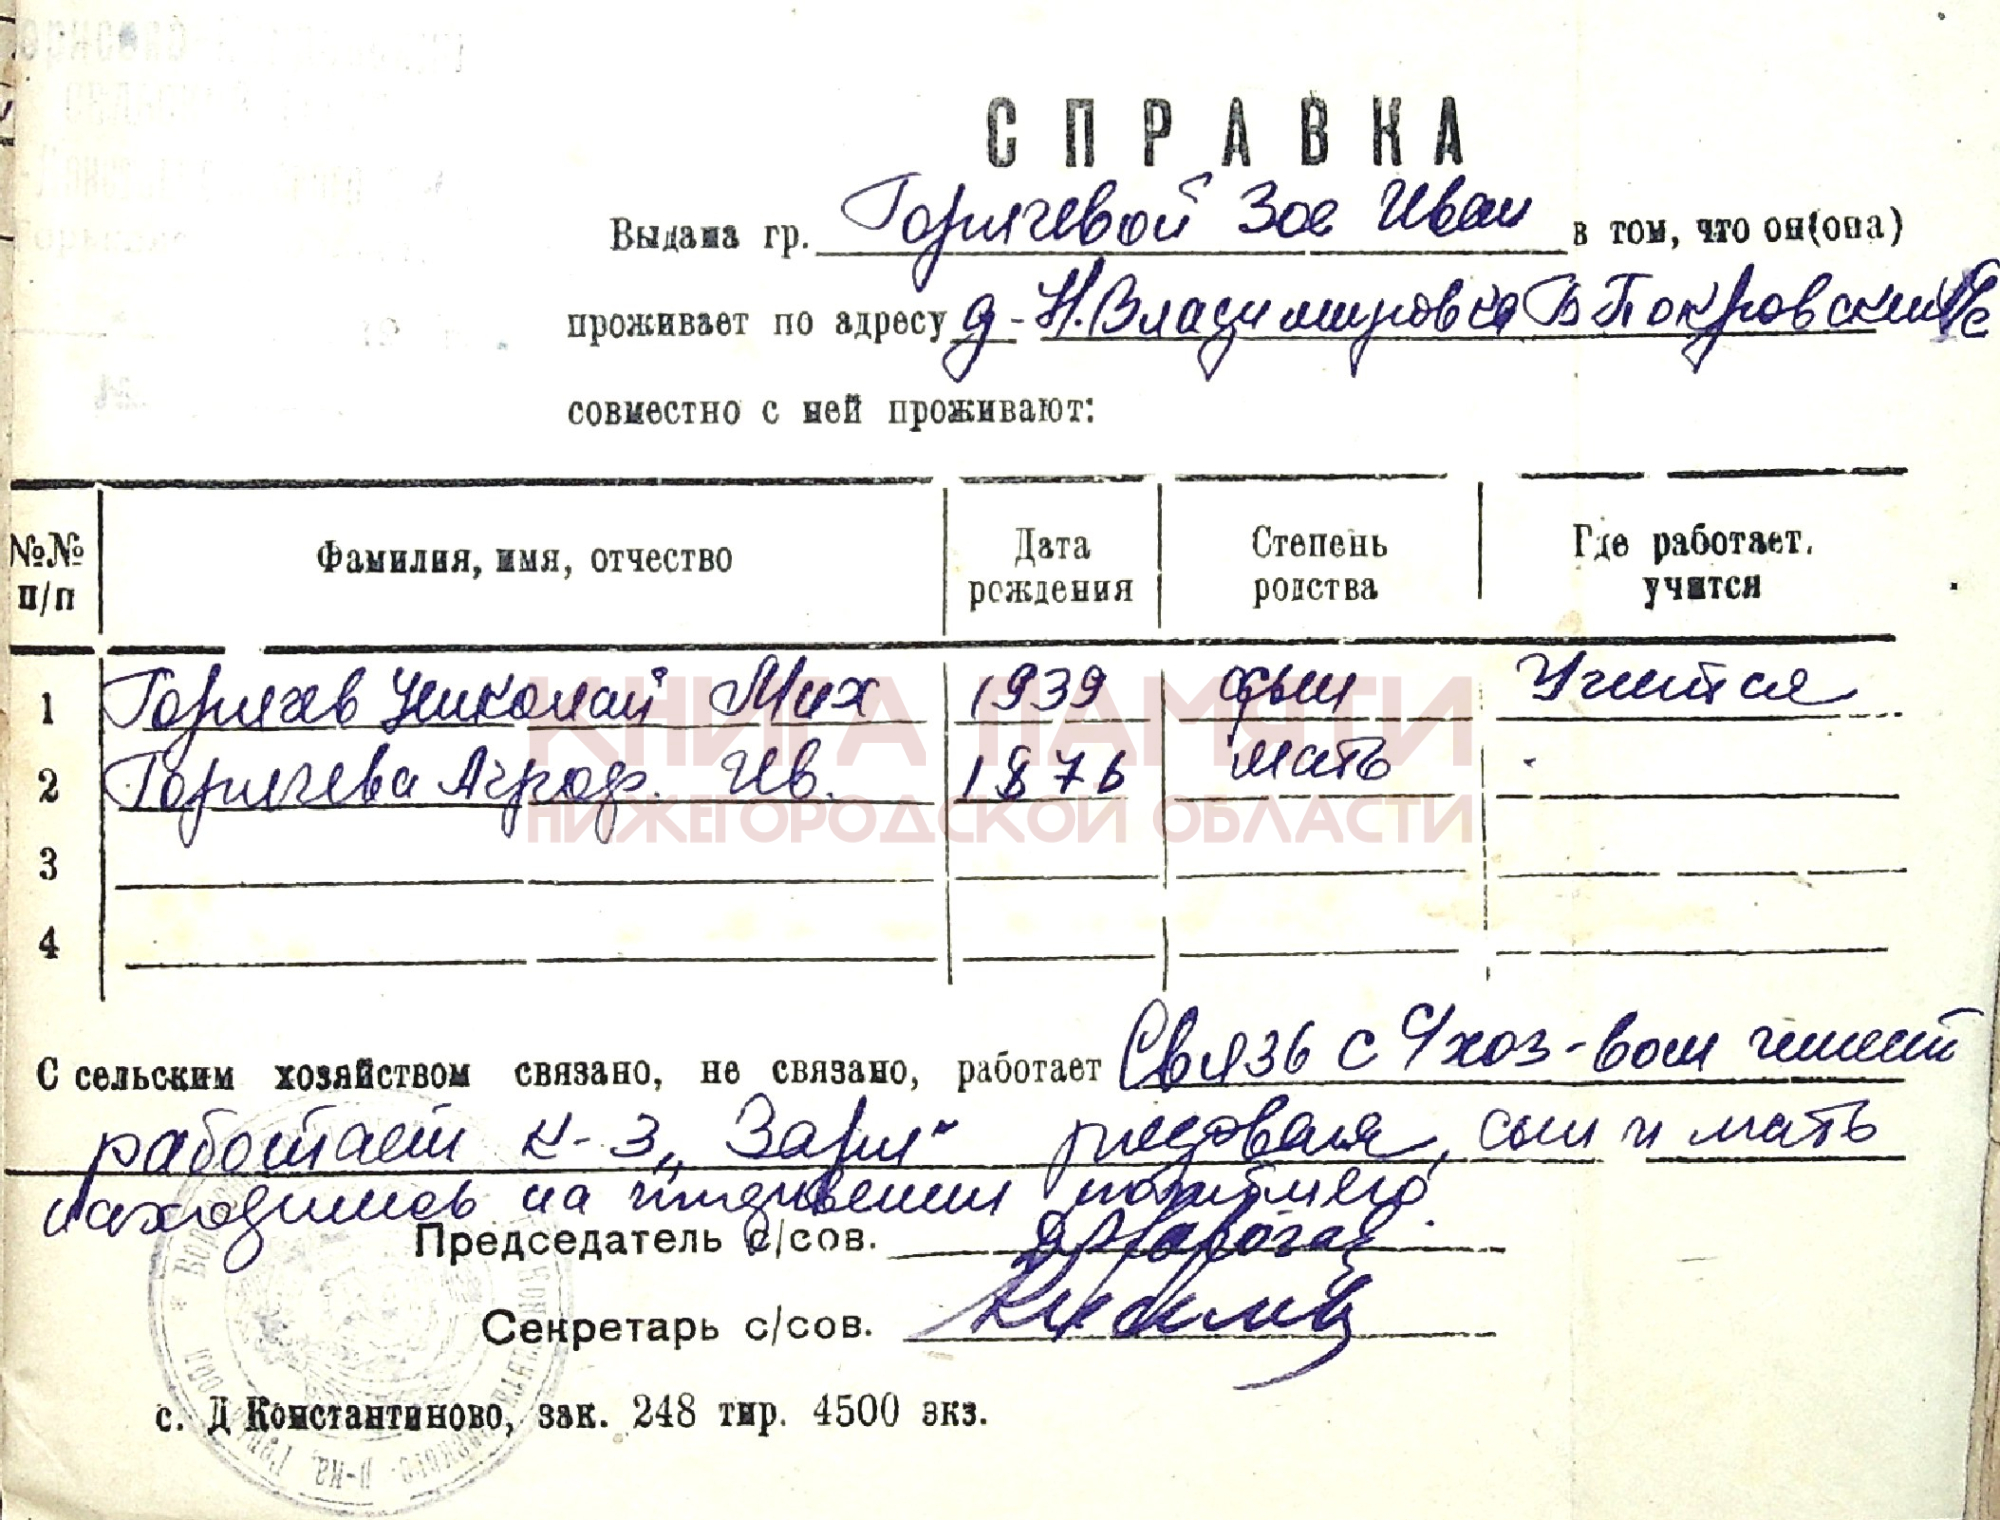 СПРАВКА
Выдана гр. Горячевой Зое Иван в том, что он(она)
проживает по адресу д-Н.Владимировка Б Покровский с/с
совместно с ней проживают:
№№ п/п Фамилия, имя, отчество Дата рождения Степень родства Где работает. учится
1 Горячев Николай Мих 1939 сын Учится
2 Горячева Агроф. Ив. 1876 мать -
3
4
КНИГА ПАМЯТИ
НИЖЕГОРОДСКОЙ ОБЛАСТИ
С сельским хозяйством связано, не связано, работает Связь с с/хоз-вом имеет
работает к-з „Заря" рядовая, сын и мать
находились на иждивении погибшего.
Председатель с/сов.
Секретарь с/сов.
с. Д Константиново, зак. 248 тир. 4500 экз.